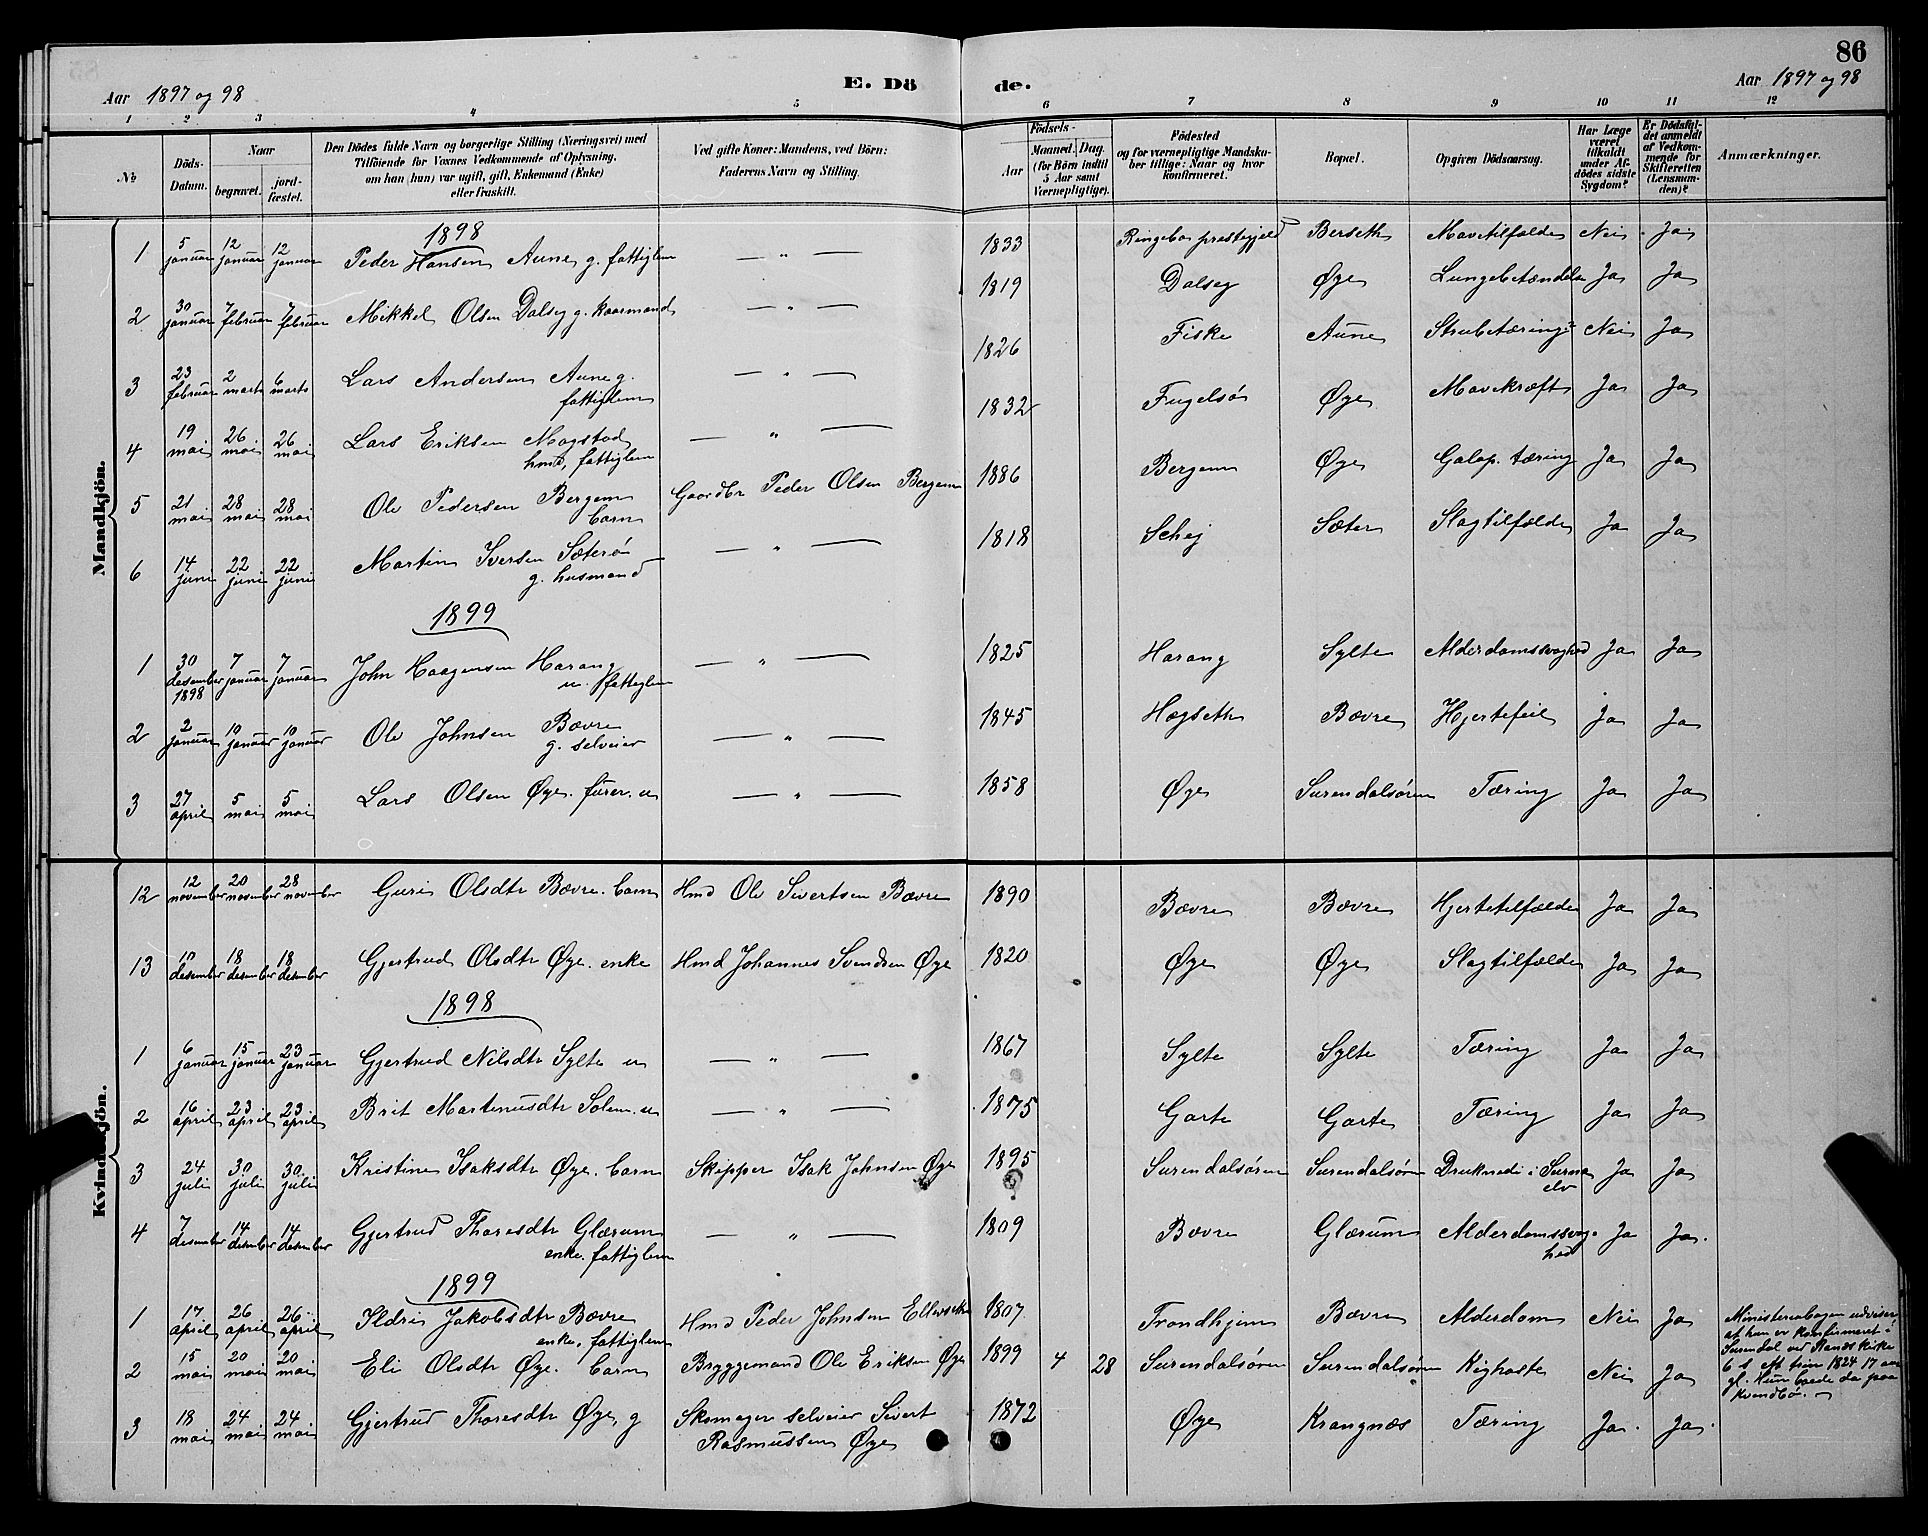 86
Aar 1897 og 98
E. Dö
de.
Aar 1897 og 98
1 2 3 4 5 6 7 8 9 10 11 12
№
Döds-Datum.
Naar
begravet.
jord-fæstet.
Den Dödes fulde Navn og borgerlige Stilling (Næringsvei) med
Tilföiende for Voxnes Vedkommende af Oplysning,
om han (hun) var ugift, gift, Enkemand (Enke)
eller fraskilt.
Ved gifte Koner: Mandens, ved Börn:
Faderens Navn og Stilling.
Födsels-
Aar
Maaned. Dag.
(for Börn indtil
5 Aar samt
Værnepligtige).
Födested
og for værnepligtige Mandska-
ber tillige: Naar og hvor
konfirmeret.
Bopæl.
Opgiven Dödsaarsag.
Har Læge
været
tilkaldt
under Af-
dödes sidste
Sygdom?
Er Dödsfal-
det anmeldt
af Vedkom-
mende for
Skifteretten
(Lensman-
den)?
Anmærkninger.
Mandkjön.
1898
1 5 januar 12 januar 12 januar Peder Hansen Aune g. fattiglem — " — 1833 Ringebo prestegjeld Berseth Mavetilfælde Nei Ja
2 30 januar 7 februar 7 februar Mikkel Olsen Dalseg g. kaarmand — " — 1819 Dalseg Øye Lungebetændelse Ja Ja
3 23 februar 2 marts 6 marts Lars Andersen Aune g. fattiglem — " — 1826 Fiske Aune Strubetæring Nei Ja
4 19 mai 26 mai 26 mai Lars Eriksen Mogstad hmd, fattiglem — " — 1832 Fugelsø Øye Mavekræft Ja Ja
5 21 mai 28 mai 28 mai Ole Pedersen Bergem barn Gaardbr Peder Olsen Bergem 1886 Bergem Øye Galop. tæring Ja Ja
6 14 juni 22 juni 22 juni Martin Iversen Sæterø g. husmand — " — 1818 Schej Sæter Slagtilfælde Ja Ja
1899
1 30 desember 1898 7 januar 7 januar John Haagensen Harang u. fattiglem — " — 1825 Harang Sylte Alderdomssvaghed Ja Ja
2 2 januar 10 januar 10 januar Ole Johnsen Bævre g. selveier — " — 1845 Hægseth Bævre Hjertefeil Ja Ja
3 27 april 5 mai 5 mai Lars Olsen Øye. furer. u — " — 1858 Øye Surendalsøren Tæring Ja Ja
Kvindekjön.
12 12 november 20 november 28 november Guri Olsdtr Bævre. barn Hmd Ole Sivertsen Bævre 1890 Bævre Bævre Hjertetilfælde Ja Ja
13 10 desember 18 desember 18 desember Gjertrud Olsdtr Øye. enke Hmd Johannes Svendsen Øye 1820 Øye Øye Slagtilfælde Ja Ja
1898
1 6 januar 15 januar 23 januar Gjertrud Nilsdtr Sylte u — " — 1867 Sylte Sylte Tæring Ja Ja
2 16 april 23 april 23 april Brit Martinusdtr Solem. u — " — 1875 Garte Garte Tæring Ja Ja
3 24 juli 30 juli 30 juli Kristine Isaksdtr Øye. barn Skipper Isak Johnsen Øye 1895 Surendalsøren Surendalsøren Druknede i Surna elv Ja Ja
4 7 desember 14 desember 14 desember Gjertrud Thoresdtr Glærum enke. fattiglem — " — 1809 Bævre Glærum Alderdomssvag-hed Ja Ja.
1899
1 17 april 26 april 26 april Ildri Jakobsdtr Bævre enke, fattiglem Hmd Peder Johnsen Ellevseth 1807 Trondhjem Bævre Alderdom Nei Ja
Ministerialbogen udviser
at hun er konfirmeret i
Surendal ved Rands kirke
6 s eft trin 1824 17 aar
gl. Hun boede da paa
Kvendbø.
2 15 mai 20 mai 20 mai Eli Olsdtr Øye. barn Bryggemand Ole Eriksen Øye 1899 4 28 Surendalsøren Surendalsøren Kighoste Nei Ja
3 18 mai 24 mai 24 mai Gjertrud Thoresdtr Øye, g Skomager selveier Sivert Rasmussen Øye 1872 Øye Krangnæs Tæring Ja. Ja.